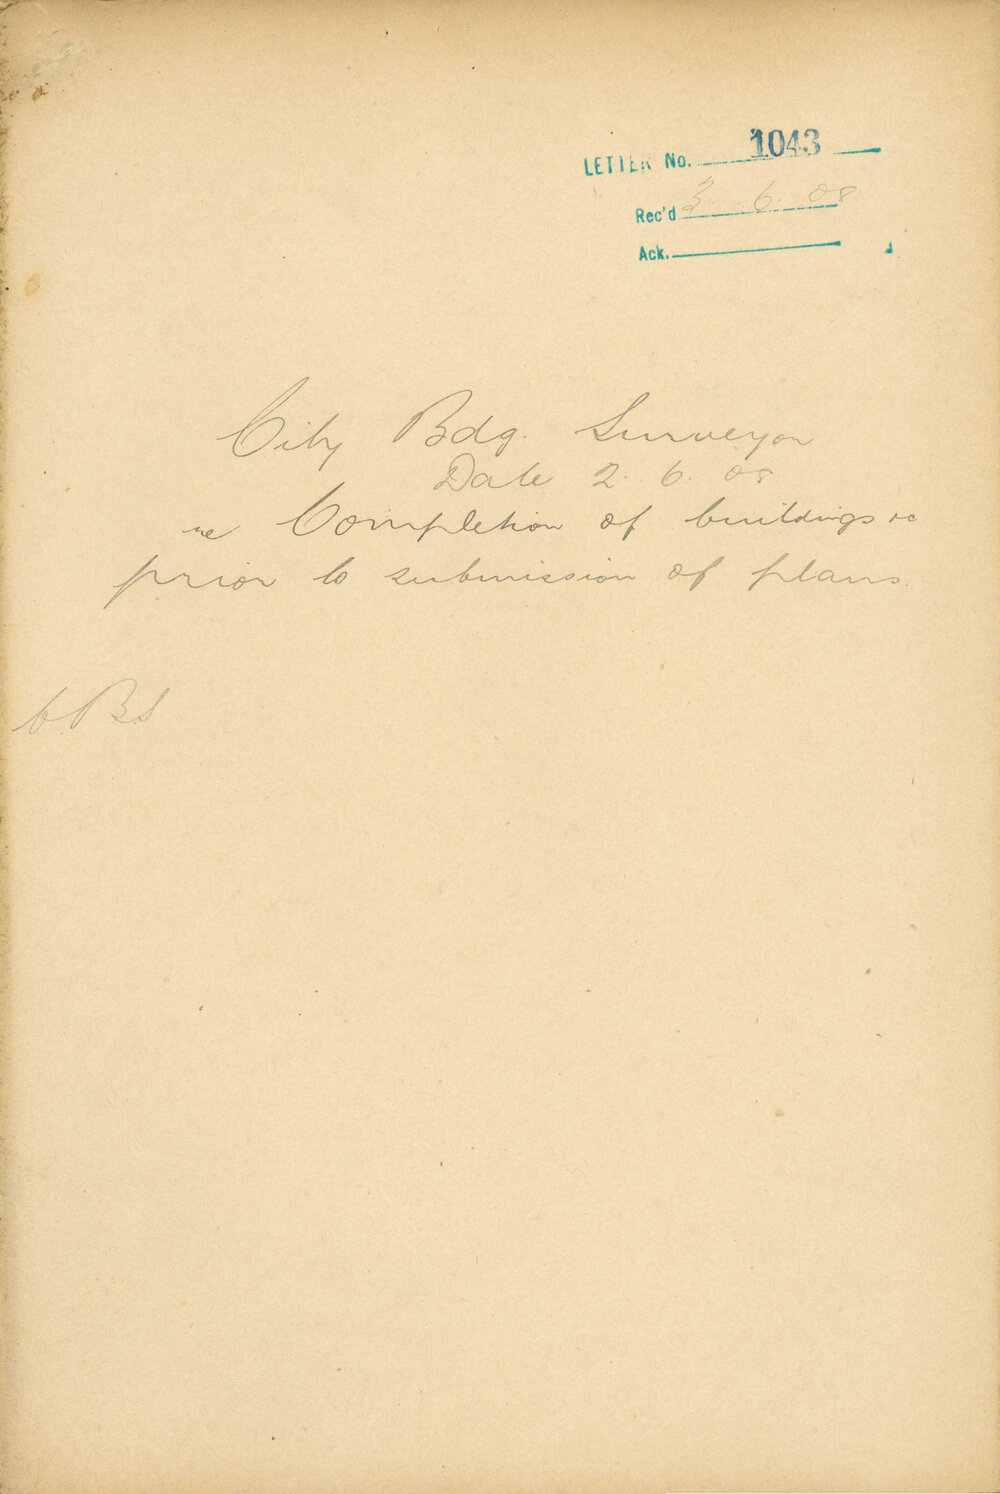 LETTER No. 1043
Rec'd 3. 6. 08
Ack.
City Bdg. Surveyor
Date 2. 6. 08
re Completion of buildings &c
prior to submission of plans.
C.B.S